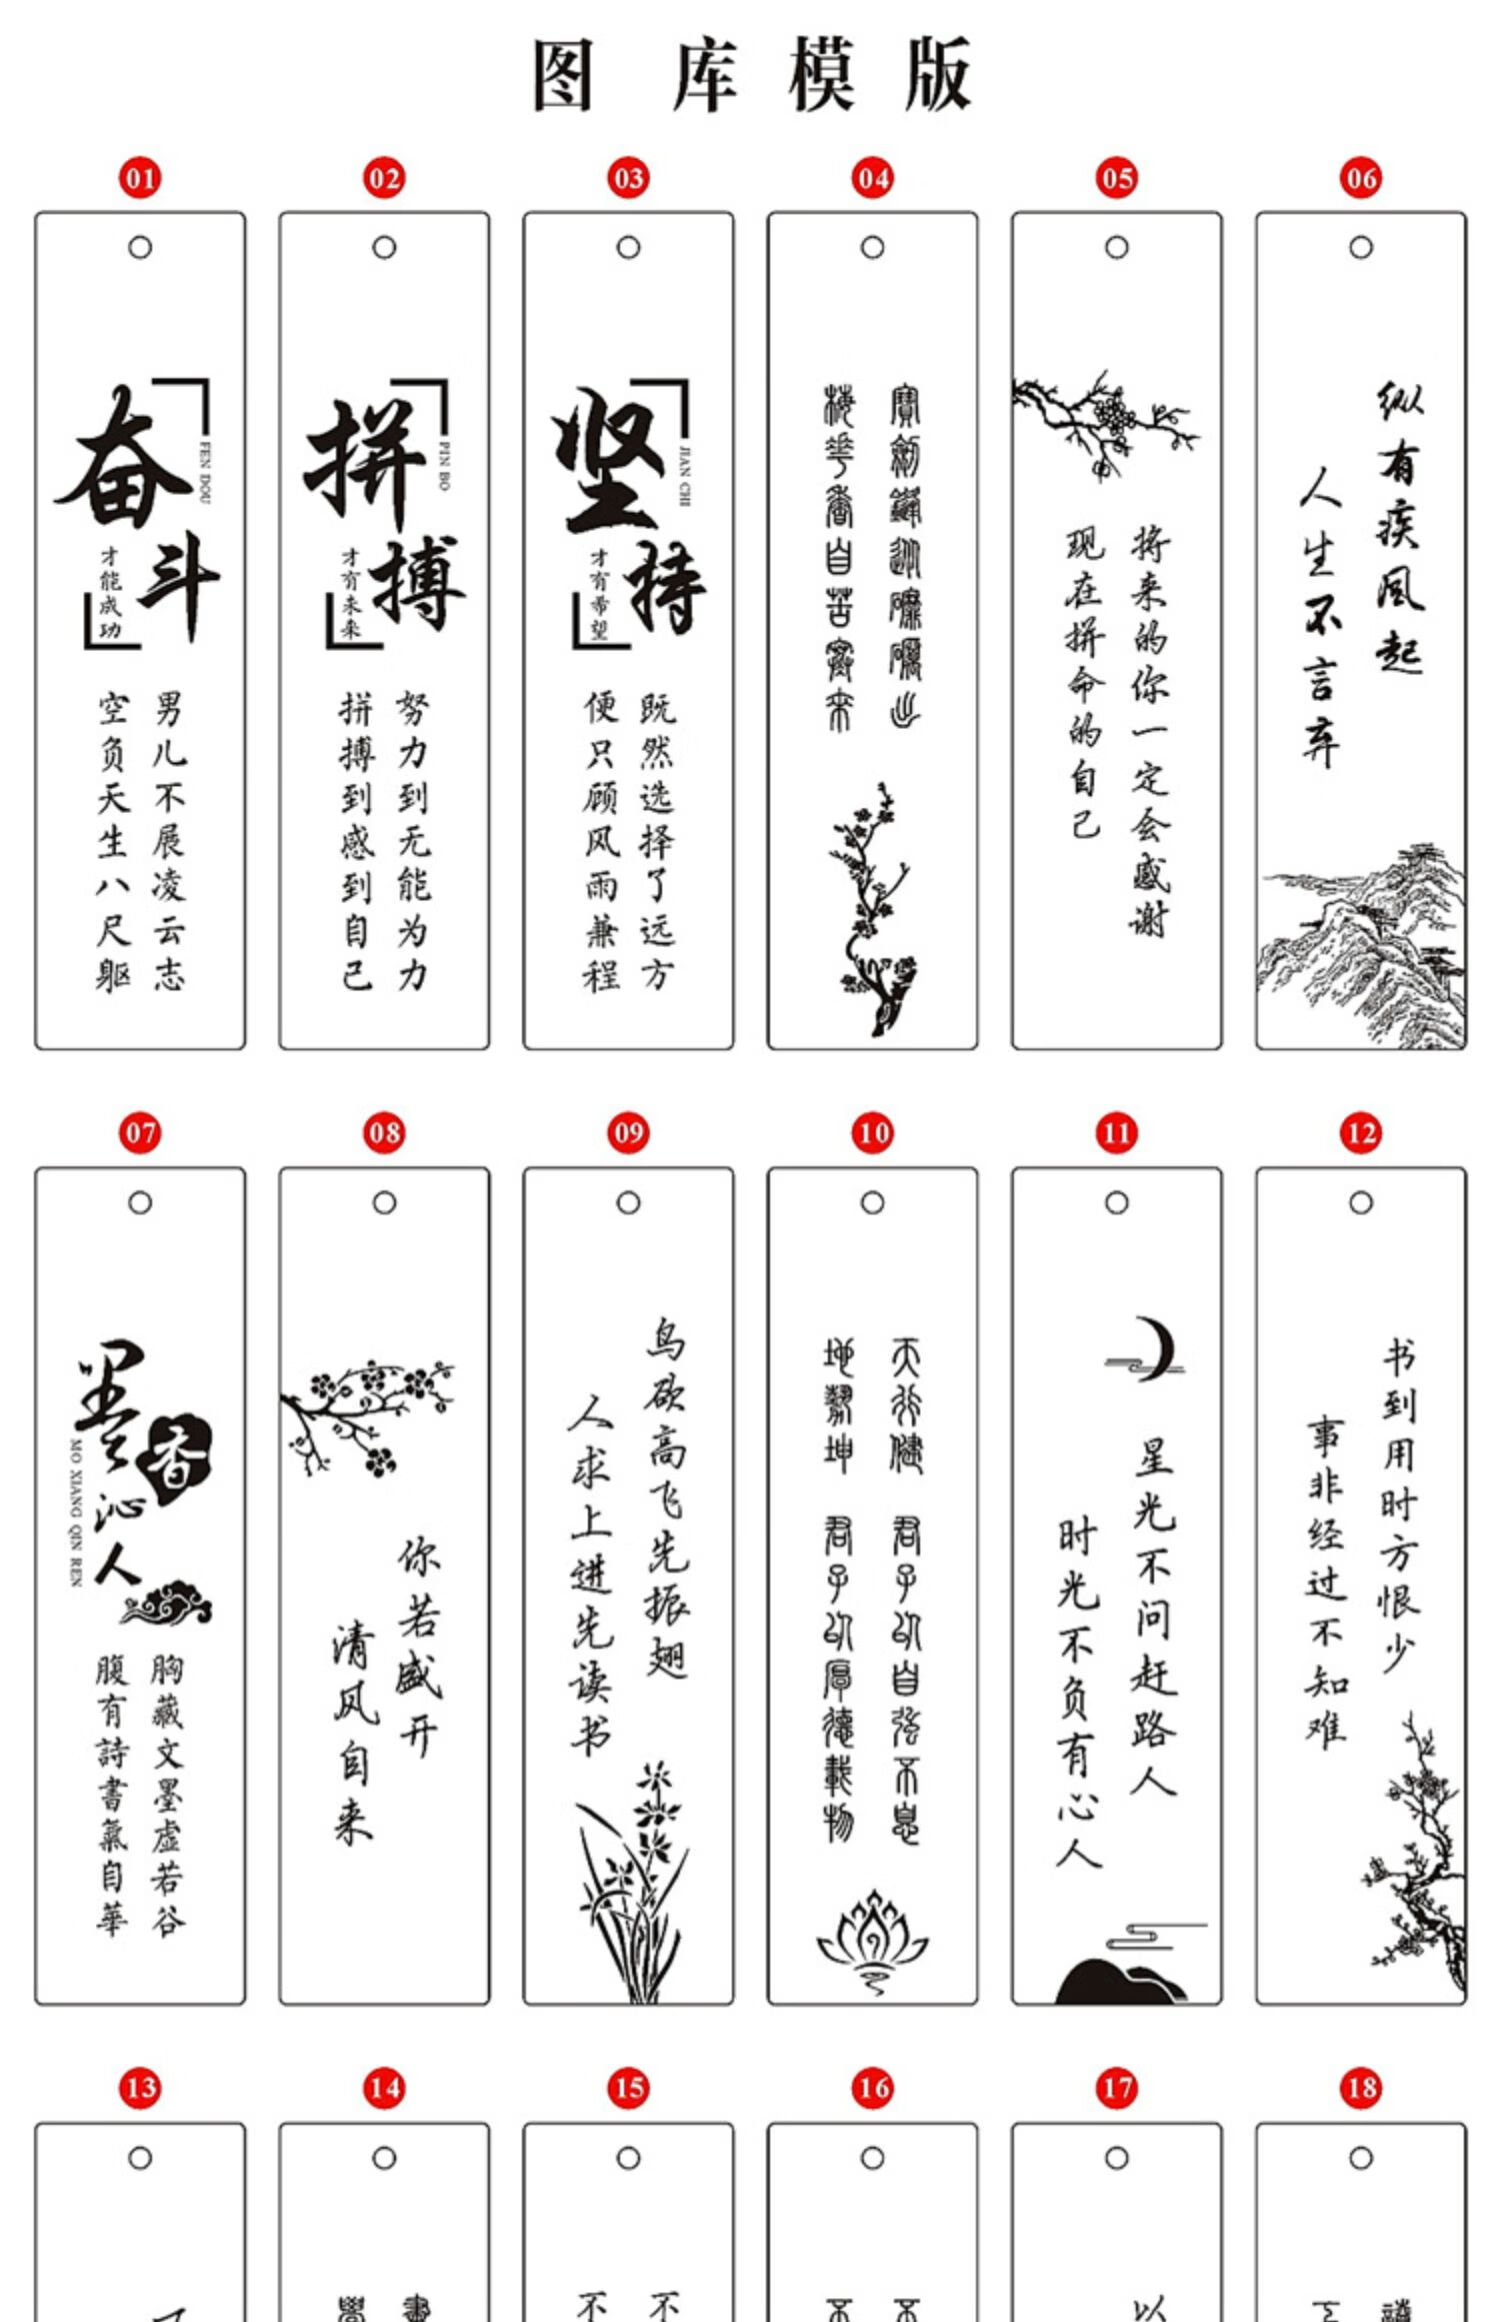 图库模版
01
奋斗
FEN DOU
才能成功
男儿不展凌云志
空负天生八尺躯
02
拼搏
PIN BO
才有未来
努力到无能为力
拼搏到感到自己
03
坚持
JIAN CHI
才有希望
既然选择了远方
便只顾风雨兼程
04
寶劍鋒從磨礪出
梅花香自苦寒來
05
将来的你一定会感谢
现在拼命的自己
06
纵有疾风起
人生不言弃
07
墨香沁人
MO XIANG QIN REN
胸藏文墨虚若谷
腹有詩書氣自華
08
你若盛开
清风自来
09
鸟欲高飞先振翅
人求上进先读书
10
天行健 君子以自強不息
地勢坤 君子以厚德載物
11
星光不问赶路人
时光不负有心人
12
书到用时方恨少
事非经过不知难
13
14
15
不
不
16
不
不
17
以
18